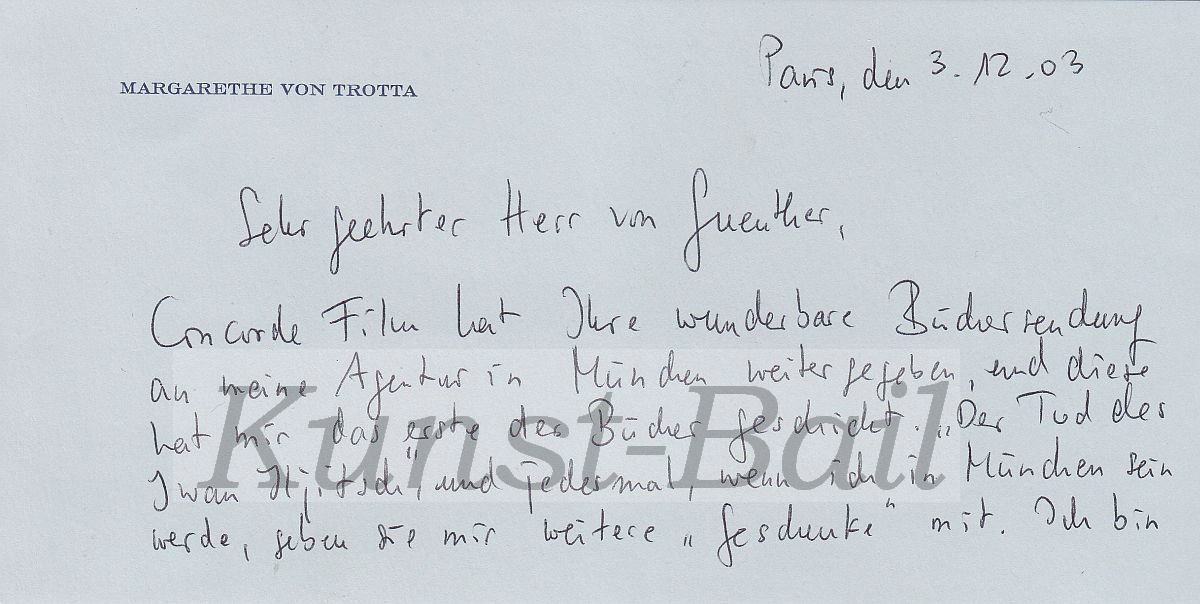 MARGARETHE VON TROTTA
Paris, den 3.12.03
Sehr geehrter Herr von Guenther,
Concorde Film hat Ihre wunderbare Büchersendung
an meine Agentur in München weitergegeben, und diese
hat mir das erste der Bücher geschickt. „Der Tod des
Iwan Iljitsch" und jedesmal, wenn ich in München sein
werde, geben sie mir weitere „Geschenke" mit. Ich bin
Kunst-Bail